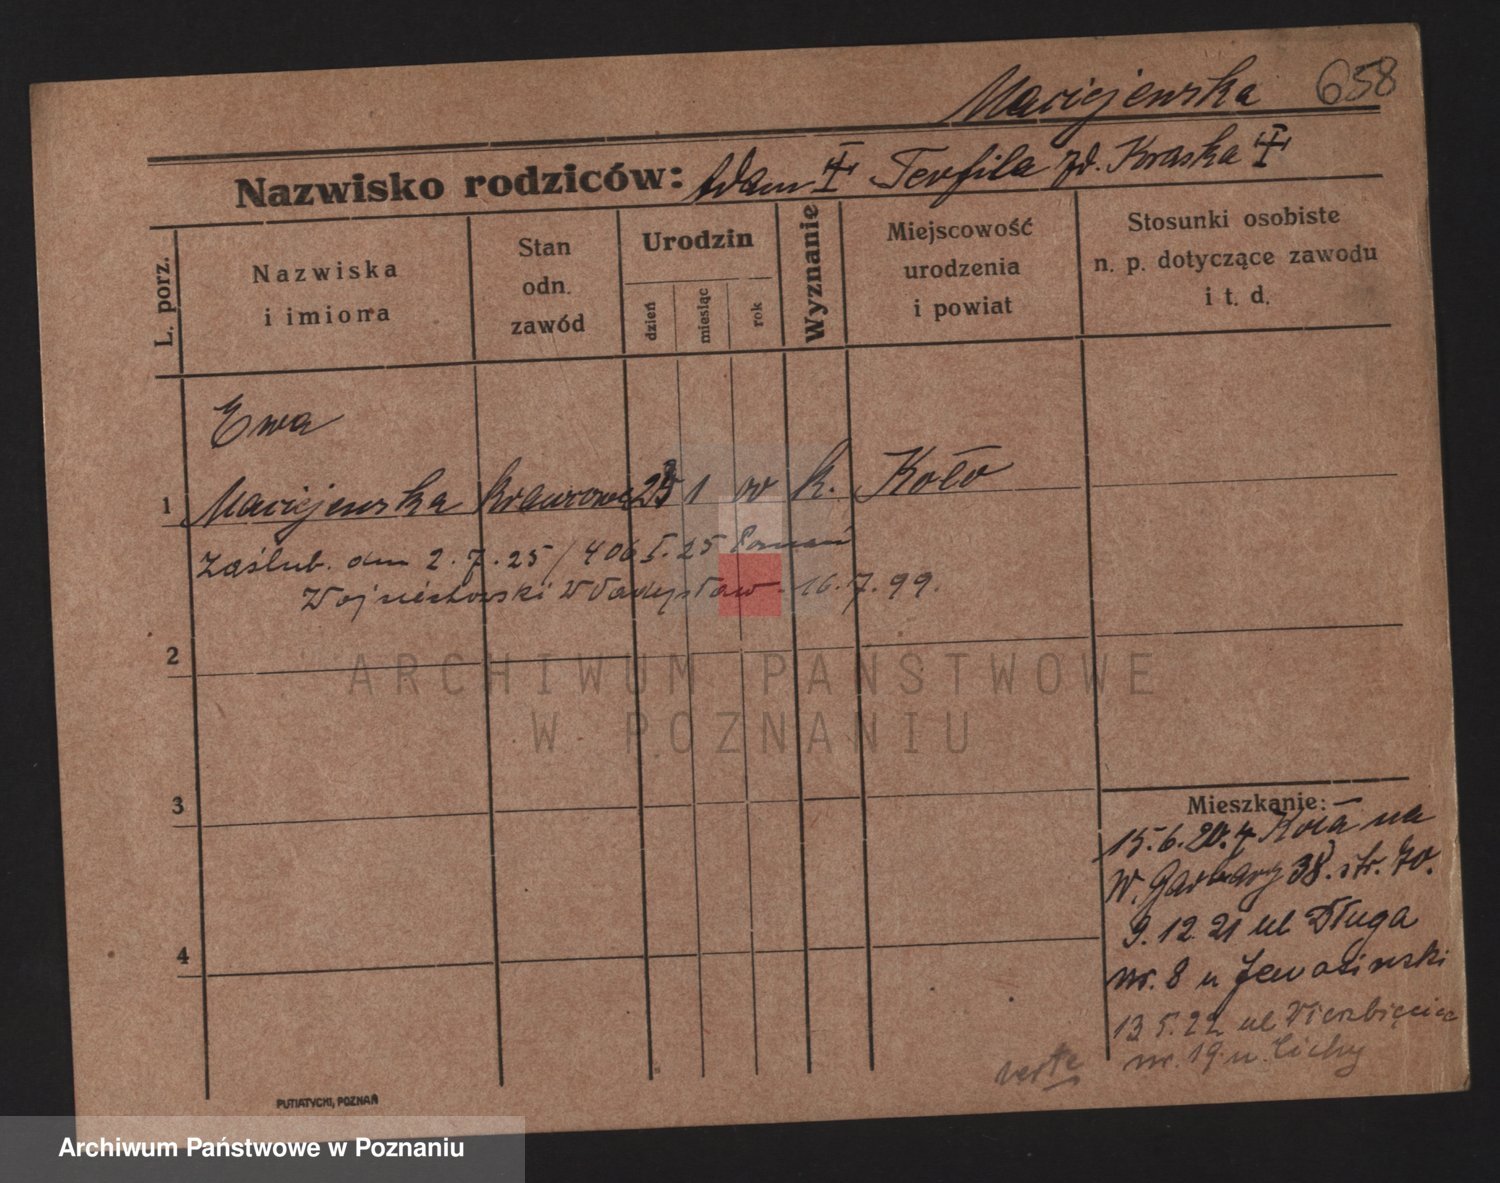 Maciejewska 658
Nazwisko rodziców: Adam Teofila zd. Kraska
L. porz.
Nazwiska
i imiona
Stan
odn.
zawód
Urodzin
dzień
miesiąc
rok
Wyznanie
Miejscowość
urodzenia
i powiat
Stosunki osobiste
n. p. dotyczące zawodu
i t. d.
Ewa
1 Maciejewska krawcowa 1 k. Koło
Zaślub. dnia 2.7.25 / 406 I. 25 Poznań
Wojciechowski Władysław 16.7.99.
2
ARCHIWUM PAŃSTWOWE
W POZNANIU
3
Mieszkanie:
15.6.20. z Koła na
W. Garbary 38. str. 70.
4
9.12.21 ul Długa
nr. 8 u
13 5.22 ul Wierzbięcice
nr. 19 u. Cichy
verte
PUTIATYCKI, POZNAŃ
Archiwum Państwowe w Poznaniu